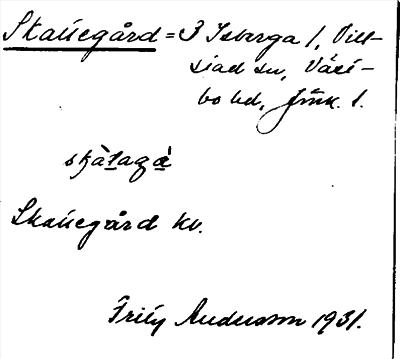 Skattegård = 3 Isberga 1, Vill-
stad sn, Västbo-
bo hd, Jönk. l.
skàtagá
Skattegård kv.
Frity Andersson 1931.